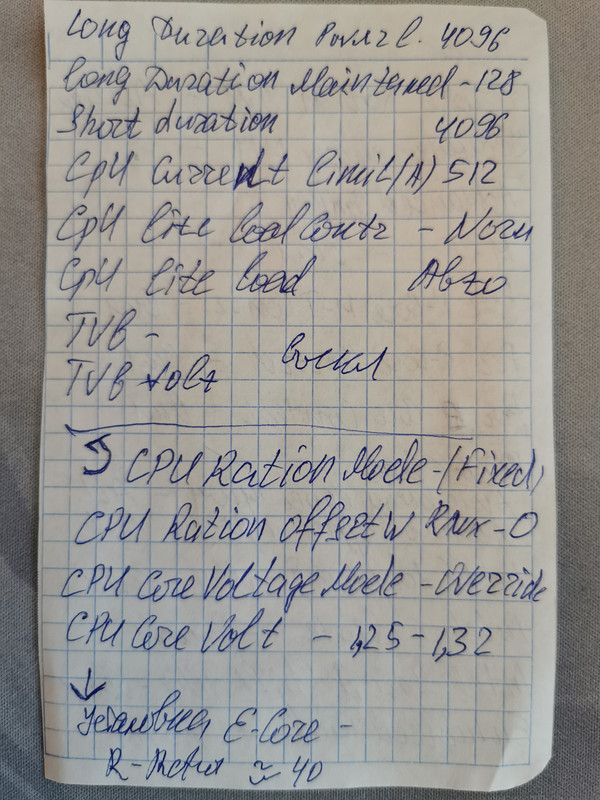 Long Duration Power l. 4096
Long Duration Maintened - 128
Short duration 4096
CPU Current limit (A) 512
CPU lite load Contr - Norm
CPU lite load Авто
TVB -
TVB volt
CPU Ration Mode - (Fixed)
CPU Ration Offset W - 0
CPU Core Voltage Mode - Override
CPU Core Volt - 1,25 - 1,32
↓
Установка E-Core -
≈ 40